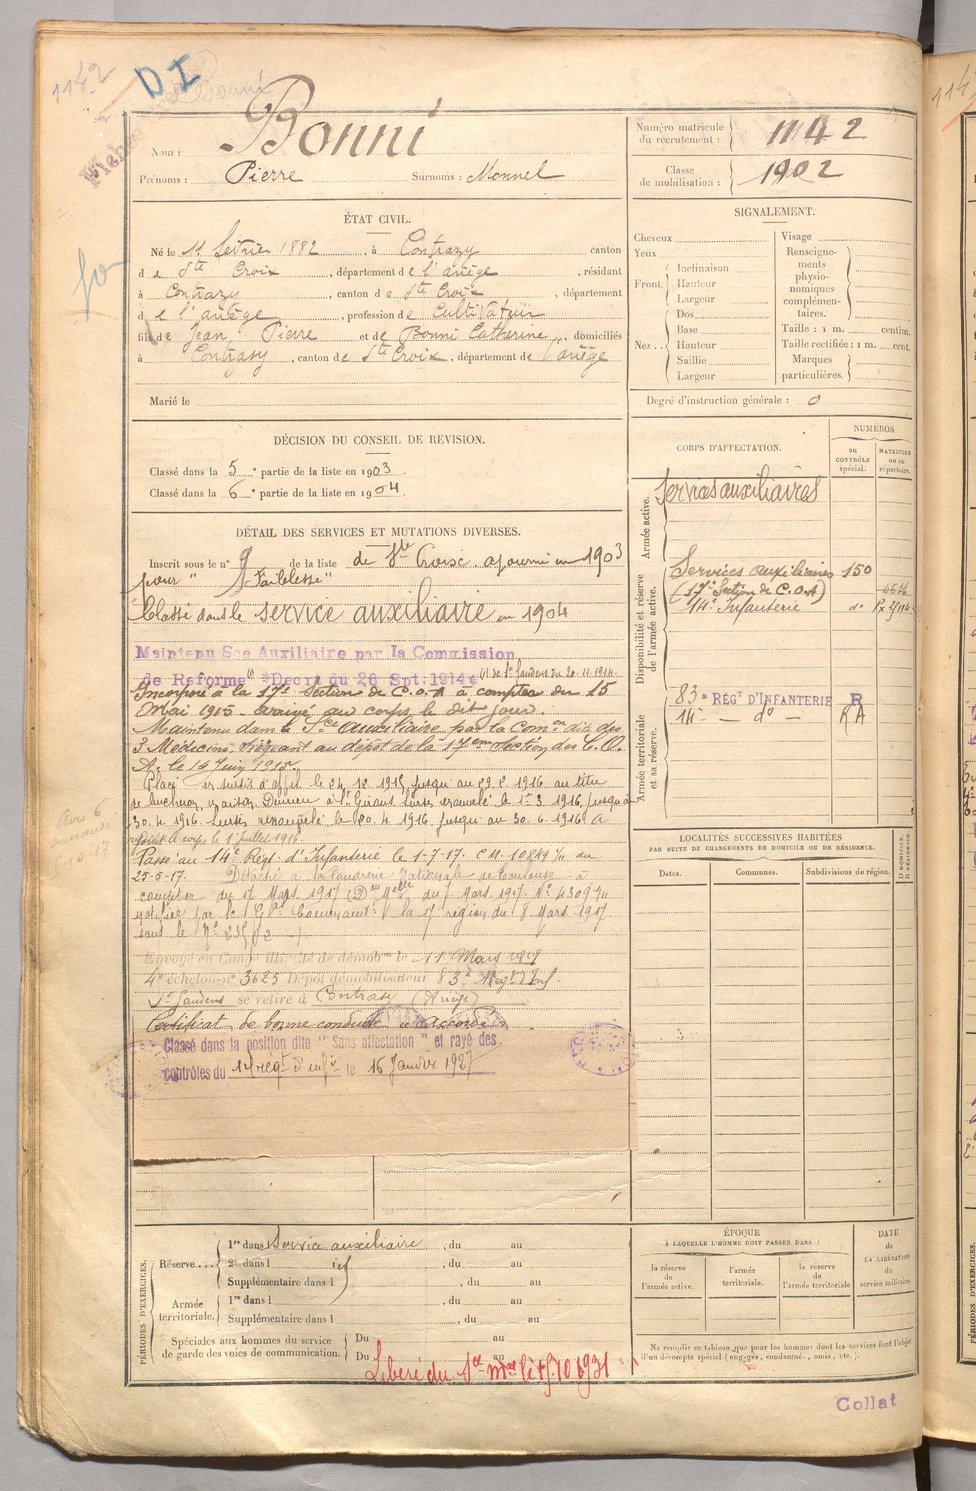 1142
DI
Bonni
Nom : Bonni
Prénoms : Pierre Surnoms : Monnel
Numéro matricule du recrutement : 1142
Classe de mobilisation : 1902
ÉTAT CIVIL.
Né le 11 février 1882, à Contrazy canton
de Ste Croix, département de l'ariège, résidant
à Contrazy, canton de Ste Croix, département
de l'ariège, profession de Cultivateur
fils de Jean Pierre et de Bonni Catherine, domiciliés
à Contrazy, canton de Ste Croix, département de l'ariège
Marié le
SIGNALEMENT.
Cheveux
Yeux
Front. Inclinaison
Hauteur
Largeur
Nez. Dos
Base
Hauteur
Saillie
Largeur
Visage
Renseignements physionomiques complémentaires.
Taille : 1 m. centim.
Taille rectifiée : 1 m. cent.
Marques particulières.
Degré d'instruction générale : 0
DÉCISION DU CONSEIL DE REVISION.
Classé dans la 5e partie de la liste en 1903.
Classé dans la 6e partie de la liste en 1904.
DÉTAIL DES SERVICES ET MUTATIONS DIVERSES.
Inscrit sous le n° 9 de la liste de Ste Croix ajourné en 1903
pour " Faiblesse "
Classé dans le service auxiliaire en 1904
Maintenu Sce Auxiliaire par la Commission
de Réforme Décrt du 26 Spt. 1914 (1) de St Gaudens du 20.11.1914.
Incorporé à la 17e Section de C.O.A à compter du 15
Mai 1915. arrivé au corps le dit jour.
Maintenu dans le Sce auxiliaire par la Comon dite des
3 Médecins siégeant au dépôt de la 17eme Section des C.O.
A. le 14 Juin 1915.
Placé en sursis d'appel le 24 12 1915 jusqu'au 29 2 1916 au titre
de maison à St Girons sursis renouvelé le 1er 3 1916 jusqu'au
30.4.1916 sursis renouvelé le 20.4.1916 jusqu'au 30.6.1916 A
rejoint le corps le 1er Juillet 1916.
Passé au 14e Régt. d'Infanterie le 1-7-17. CM. 10849 % du
25-5-17. Détaché à la Poudrerie Nationale de Toulouse à
compter du 17 Mars 1917 (Don Mlle du 7 Mars 1917. N° 4309 %
notifiée par le Gal Commandt la 17e région du 8 Mars 1917.
sous le N°
Envoyé en Congé illimité de démobon le 11 Mars 1919
4e échelon n° 3625 Dépôt démobilisateur 83e Régt Inf.
St Gaudens se retire à Contrasy (Ariège)
Certificat de bonne conduite "accordé".
Classé dans la position dite " Sans affectation " et rayé des
contrôles du 14 régt d'infie le 16 Janvier 1927
CORPS D'AFFECTATION.
NUMÉROS
au CONTRÔLE spécial.
MATRICULE ou au répertoire.
Armée active.
Services auxiliaires
Disponibilité et réserve de l'armée active.
Services auxiliaires 150
(17e Section de C.O.A)
14e Infanterie do
Armée territoriale et sa réserve.
83e RÉGt D'INFANTERIE R
14e — do — RA
LOCALITÉS SUCCESSIVES HABITÉES
PAR SUITE DE CHANGEMENTS DE DOMICILE OU DE RÉSIDENCE.
Dates. Communes. Subdivisions de région. D. DOMICILE. R. RÉSIDENCE.
PÉRIODES D'EXERCICES.
Réserve... 1re dans l Service auxiliaire, du au
2e dans l, du au
Supplémentaire dans l, du au
Armée territoriale. 1re dans l, du au
Supplémentaire dans l, du au
Spéciales aux hommes du service de garde des voies de communication. Du au
Du au
Libéré du Sce
ÉPOQUE
À LAQUELLE L'HOMME DOIT PASSER DANS :
la réserve de l'armée active.
l'armée territoriale.
la réserve de l'armée territoriale
DATE de LA LIBÉRATION du service militaire.
Ne remplir ce tableau que pour les hommes dont les services font l'objet
d'un décompte spécial (engagés, condamnés, omis, etc.).
Collat